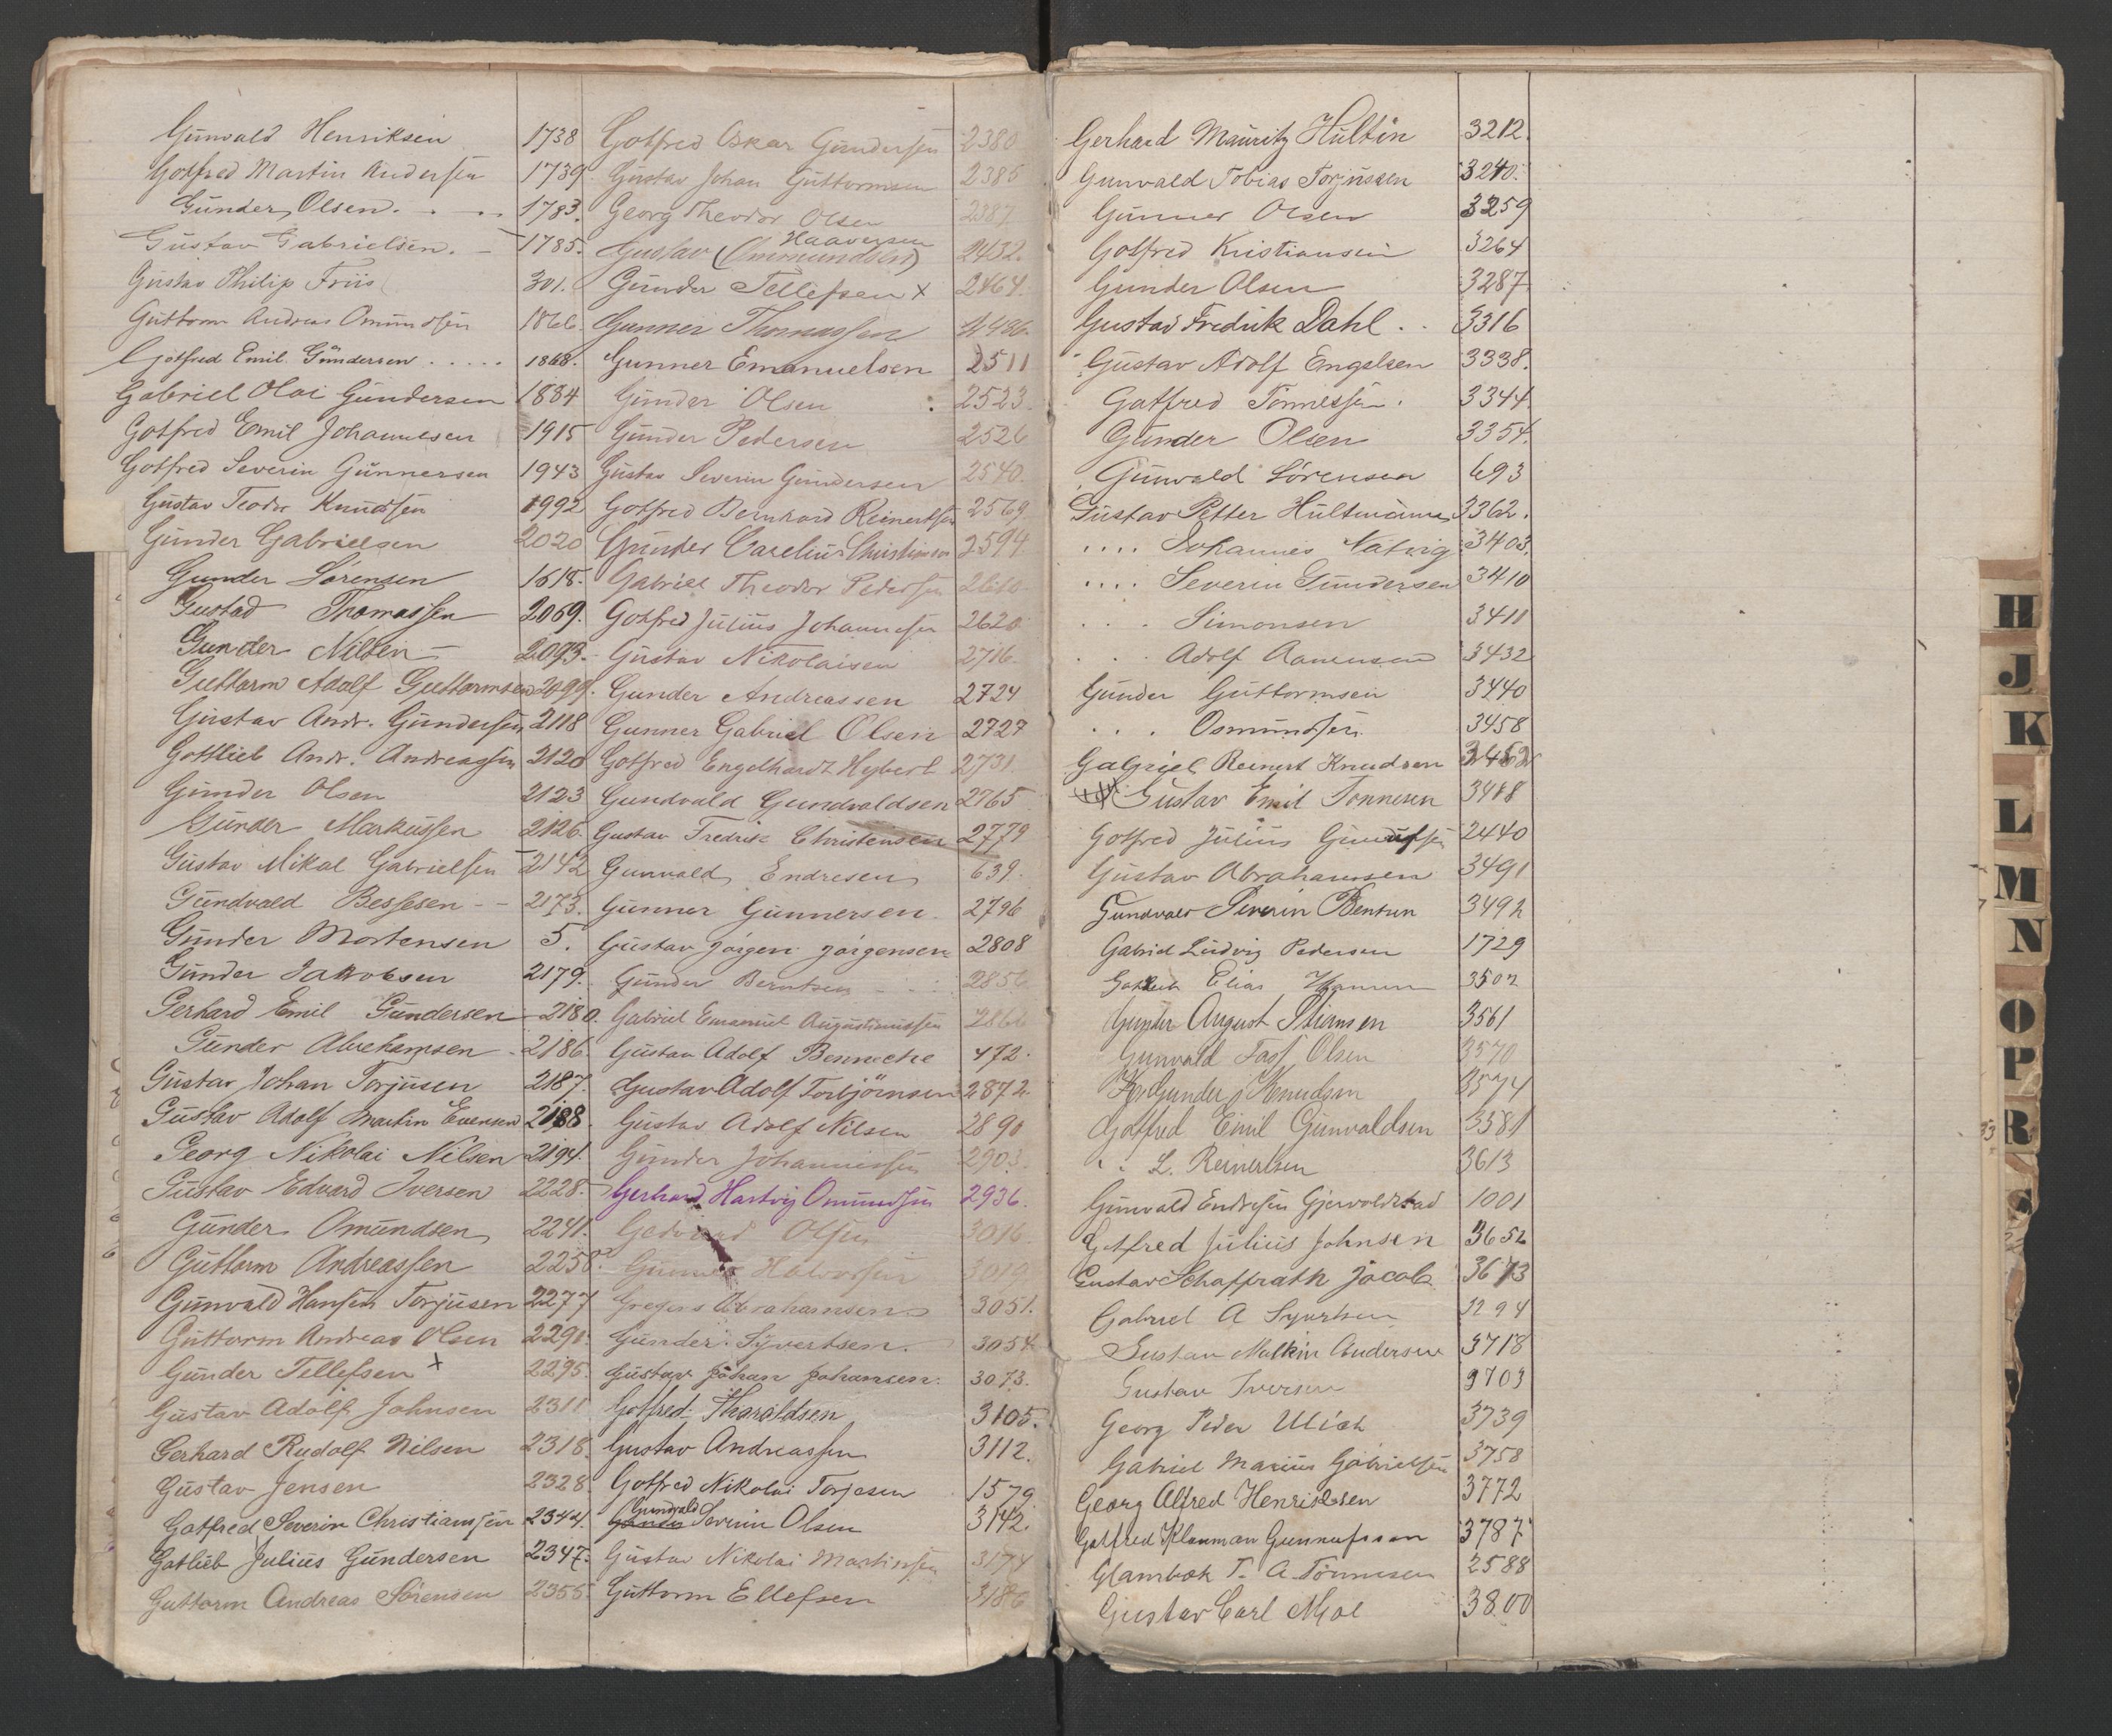 Gunvald Henriksen 1738
Gotfred Martin Andersen 1739
Gunder Olsen. 1783.
Gustav Gabrielsen. 1785.
Gustav Philip Friis 301.
Guttorm Andreas Omundsen 1866.
Gotfred Emil Gundersen ..... 1868.
Gabriel Olai Gundersen 1884
Gotfred Emil Johannesen 1915
Gotfred Severin Gunnersen 1943
Gustav Teodor Knudsen 1992
Gunder Gabrielsen 2020
Gunder Sörensen 1618.
Gustad Thomassen 2069.
Gunder Nilsen 2093.
Guttorm Adolf Guttormsen 2099.
Gustav Andr. Gundersen 2118
Gottlieb Andr. Andreassen 2120
Gunder Olsen 2123
Gunder Markussen 2126.
Gustav Mikal Gabrielsen 2142
Gundvald Bessesen -- 2173.
Gunder Mortensen 5.
Gunder Jakobsen 2179.
Gerhard Emil Gundersen 2180.
Gunder Abrehamsen 2186.
Gustav Johan Torjusen 2187.
Gustav Adolf Martin Evensen 2188.
Georg Nikolai Nilsen 2194.
Gustav Edvard Iversen 2228.
Gunder Omundsen 2241.
Guttorm Andreassen 2258.
Gunvald Hansen Torjusen 2277
Guttorm Andreas Olsen 2290.
Gunder Tellefsen x 2295.
Gustav Adolf Johnsen 2311
Gerhard Rudolf Nilsen 2318.
Gustav Jensen 2328.
Gotfred Severin Christianssen 2344.
Gotlieb Julius Gundersen 2347.
Guttorm Andreas Sörensen 2355.
Gotfred Oskar Gundersen 2380
Gustav Johan Guttormsen 2385
Georg Theodor Olsen 2387
Haaversen
Gustav (Ommundsen) 2432.
Gunder Tellefsen x 2464.
Gunner Thomassen 2486.
Gunner Emanuelsen 2511
Gunder Olsen 2523.
Gunder Pedersen 2526
Gustav Severin Gundersen 2540.
Gotfred Bernhard Reinertsen 2569
Gunder Carelius Christiansen 2594.
Gabriel Theodor Pedersen 2610
Gotfred Julius Johannesen 2620
Gustav Nikolaisen 2716.
Gunder Andreassen 2724
Gunner Gabriel Olsen 2727
Gotfred Engelhardt Hybert 2731.
Gundvald Gundvaldsen 2765
Gustav Fredrik Christensen 2779
Gunvald Endresen 639.
Gunner Gunnersen. 2796
Gustav Jörgen Jörgensen 2808
Gunder Berntsen 2856
Gabriel Emanuel Augustinussen 2866
Gustav Adolf Bennecke 472.
Gustav Adolf Torbjörnsen 2872.
Gustav Adolf Nilsen 2890
Gunder Johannessen 2903.
Gerhard Hartvig Omundsen 2936.
Olsen 3016
Gunner Halvorsen 3019
Gregers Abrahamsen 3051.
Gunder Syvertsen. 3054
Gustav Johan Johansen. 3073.
Gotfred Tharaldsen 3105.
Gustav Andreassen 3112.
Gotfred Nikolai Torjesen 1579
Gundvald
Gunder Severin Olsen 3142.
Gustav Nikolai Martinsen 3174
Guttorm Ellefsen 3186
Gerhard Mauritz Hultin 3212.
Gunvald Tobias Torjussen 3240.
Gunner Olsen 3259
Gotfred Kristiansen 3264
Gunder Olsen 3287
Gustav Fredrik Dahl .. 3316
Gustav Adolf Engelsen 3338.
Gotfred Tönnessen. 3344.
Gunder Olsen 3354.
Gunvald Sörensen 693
Gustav Petter Hultmann 3362.
.... Johannes Natvig 3403.
.... Severin Gundersen 3410
... Simonsen 3411
... Adolf Aanensen 3432
Gunder Guttormsen 3440
... Osmundsen 3458
Gabriel Reinert Knudsen
Gustav Emil Tönnesen 3488
Gotfred Julius 2440
Gustav Abrahamsen 3491
Gundvald Severin Bentsen 3492
Gabriel Ludvig Pedersen 1729
Elias Hansen 3502
Gunder August Stiansen 3561
Gunvald Olsen 3570
Gunder Knudsen 3574
Gotfred Emil Gunvaldsen 3581
.. L. Reinertsen 3613
Gunvald Endresen Gjervoldstad 1001
Gotfred Julius Johnsen 3652
Gustav Schaffrath Jacob 3673
Gabriel A Syvertsen 1294
Gustav Mathin Andersen 3718
Gustav Iversen 3703
Georg Peder Ulich 3739
Gabriel Marius Gabrielsen 3758
Georg Alfred Henriksen 3772
Gotfred Klauman Gunnufsson 3787
Glambek T. A. Tönnesen 2588
Gustav Carl Moe 3800
H
J
K
L
M
N
O
P
R
S